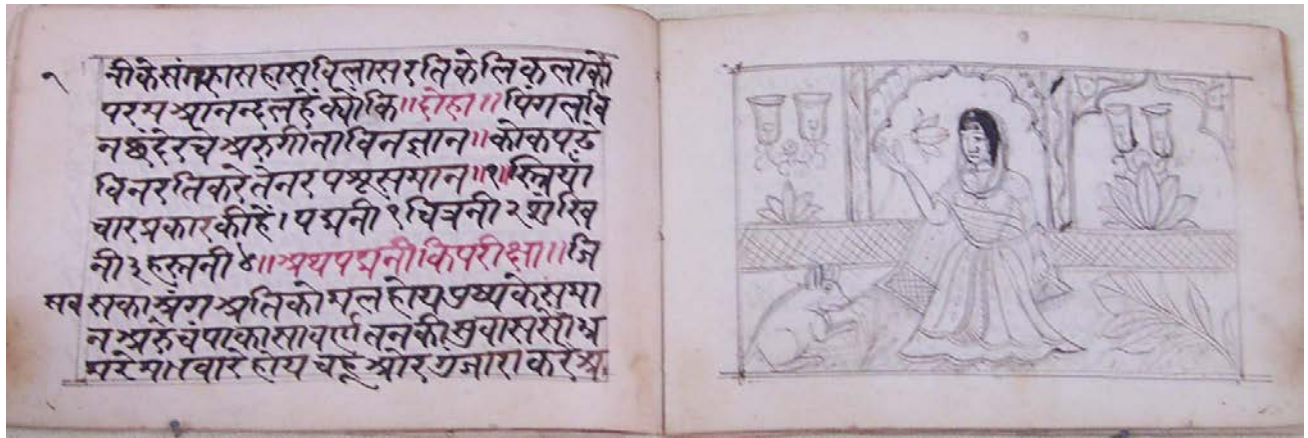 नीके संग हास हास विलास रति केलि कलाको
परम श्रानन्द लहे क्योंकि ॥ दोहा ॥ पिंगल वि
न छंदे रचे श्ररु गीता विन ज्ञान ॥ कोक पढ़े
विन रति करे ते नर पशू समान ॥१॥ स्त्रियां
चार प्रकार की हैं । पद्मनी १ चित्रनी २ शंखि
नी ३ हस्तनी ४॥ श्रथ पद्मनी कि परीक्षा ॥ जि
सव सका श्रंग श्रति कोमल होय पुष्प के समा
न श्ररु चंपा का सा वर्ण तन की सुवास सों भ्र
होय चहू श्रोर गुजारा करे श्र